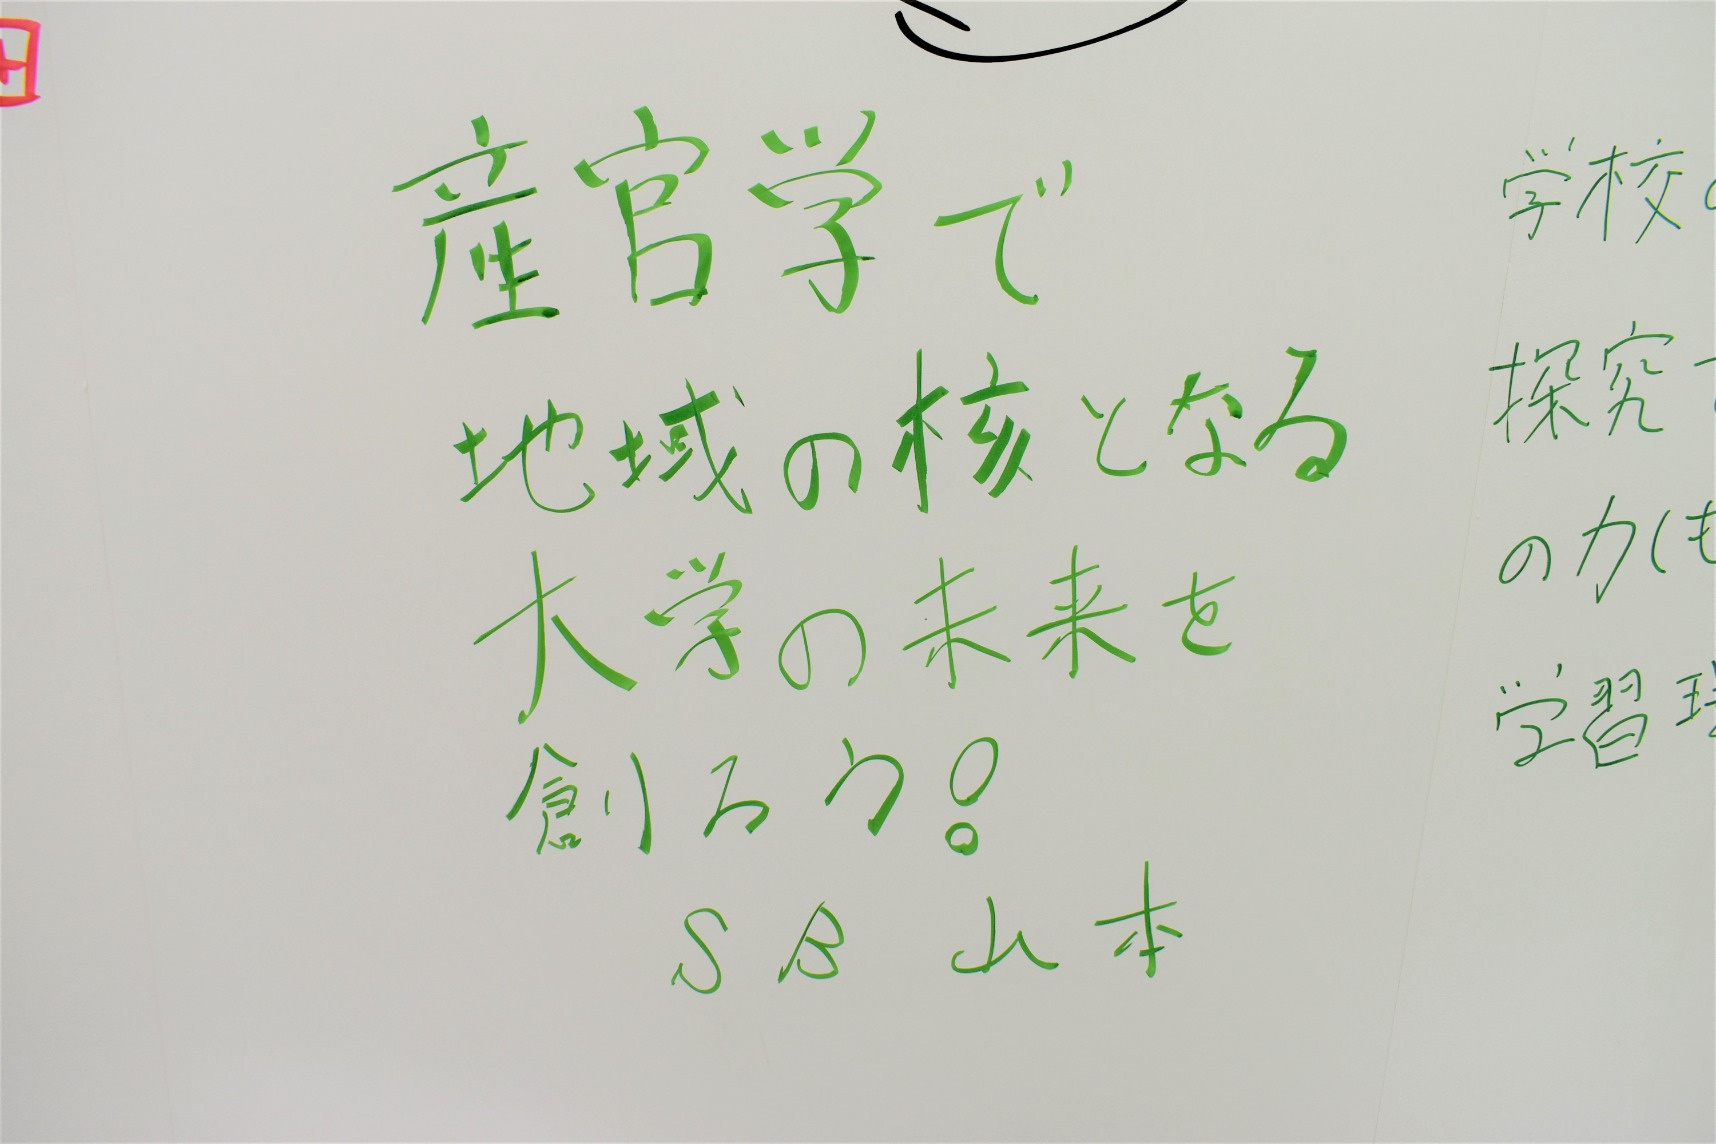 産官学で
地域の核となる
大学の未来を
創ろう!
SB 山本
学校
探究
の力(も
学習